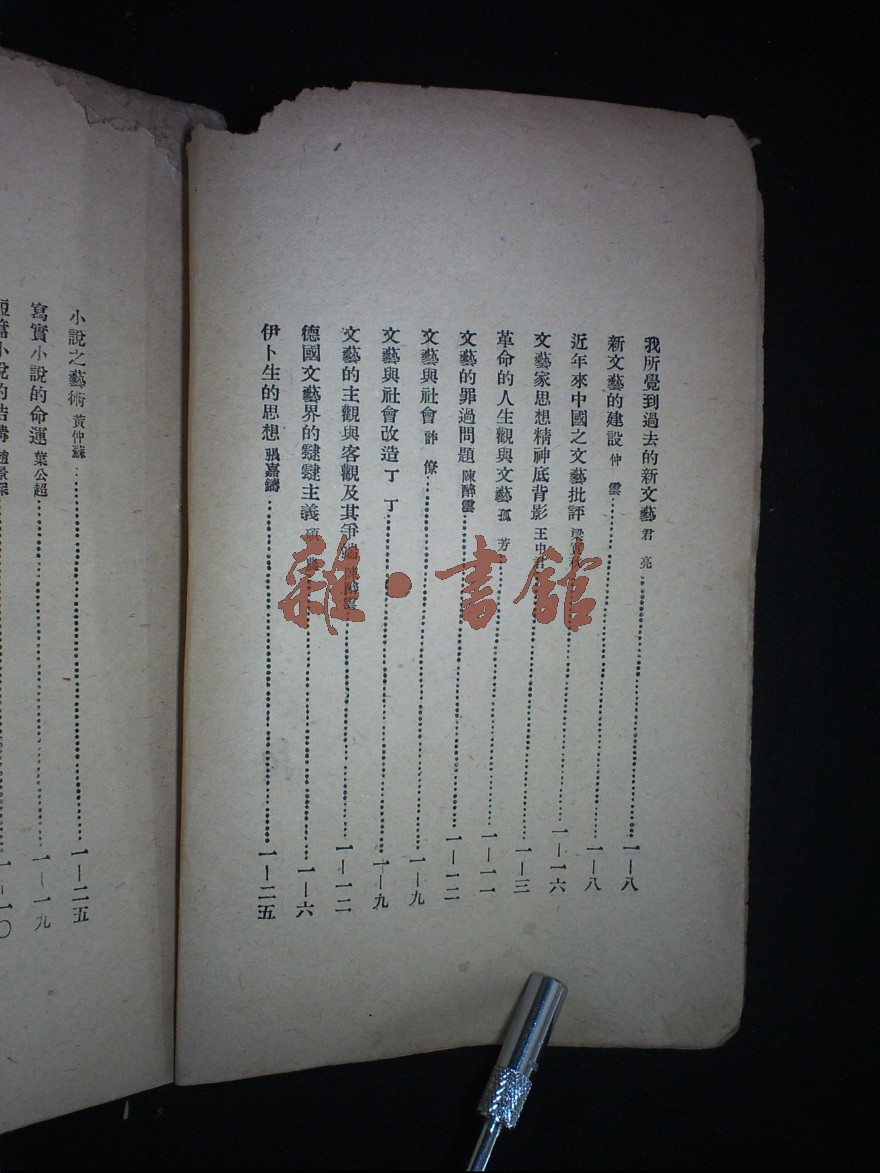 我所覺到過去的新文藝 君亮 一—八
新文藝的建設 仲雲 一—八
近年來中國之文藝批評 梁 一—一六
文藝家思想精神底背影 王 一—三
革命的人生觀與文藝 孤芳 一—一一
文藝的罪過問題 陳醉雲 一—一二
文藝與社會 僚 一—九
文藝與社會改造 丁丁 一—九
文藝的主觀與客觀及其爭端 陳醉雲 一—一二
德國文藝界的 主義 碩 一—六
伊卜生的思想 張嘉鑄 一—二五
小說之藝術 黃仲蘇 一—二五
寫實小說的命運 葉公超 一—一九
短篇小說的結構 趙景深 一—一〇
雜·書館